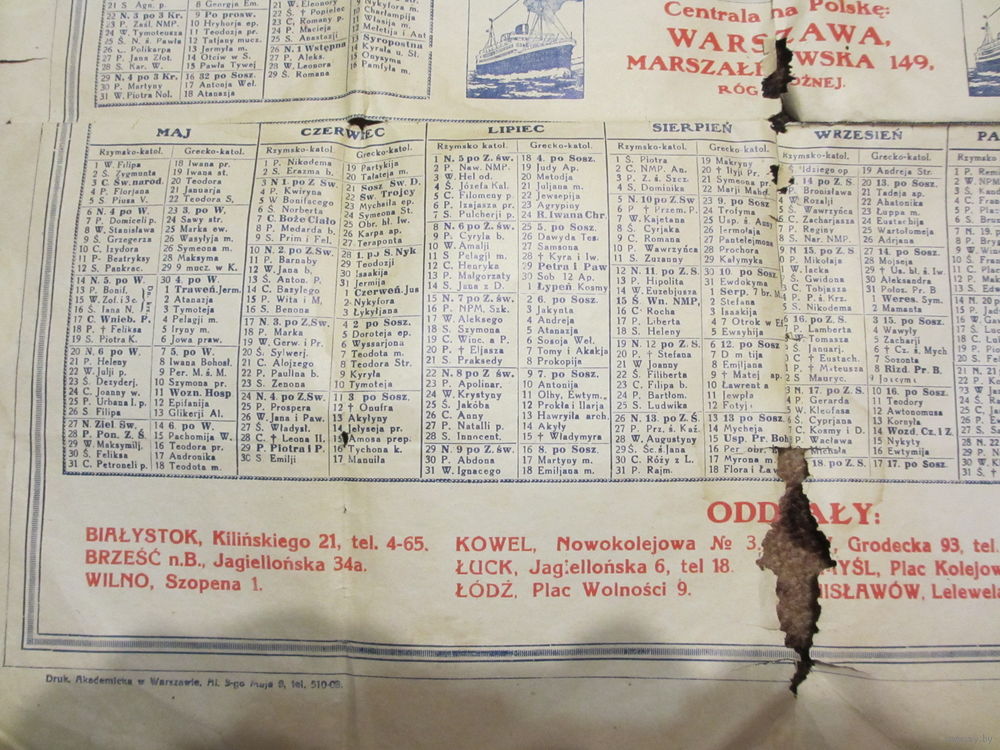 Centrala na Polskę:
WARSZAWA,
MARSZAŁKOWSKA 149,
RÓG
21 S. Agn. p.
22 N. 3 po 3 Kr.
23 P. Zaśl. NMP.
24 W. Tymoteusza
25 Ś. N. ś. Pawła
26 C. Polikarpa
27 P. Jana Złot.
28 S. Kar. W.
29 N. 4 po 3 Kr.
30 P. Martyny
31 W. Piotra Nol.
8 Georgia Em.
9 Po prosw.
10 Hryhorja ep.
11 Teodozja pr.
12 Tatjany mucz.
13 Jermyła m.
14 Otciw w S.
15 Pawła Tywej
16 32 po Sosz.
17 Antoja Weł.
18 Atanazja
21 W. Eleonory
22 Ś. † Popielec
23 C. Romany p.
24 P. Macieja
25 S. Anastazji
26 N. 1 Wstępna
27 P. Aleks.
28 W. Leonora
29 Ś. Romana
9 Nykyfora m.
10 Charłampija
11 Własija m.
12 Mełetija i Ant
13 Syropostna
14 Kyrała u. Sł.
15 Onysyma
16 Pamfyła m.
MAJ
Rzymsko-katol.
1 W. Filipa
2 Ś. Zygmunta
3 C. Św. narod.
4 P. Florjana
5 S. Piusa V.
6 N. 4 po W.
7 P. Domiceli p.
8 W. Stanisława
9 Ś. Grzegorza
10 C. Izydora
11 P. Beatryksy
12 S. Pankrac.
13 P. Bonif.
14 N. 5 po W.
15 W. Zof. i 3 c.
16 Ś. Jana N.
17 C. Wnieb. P.
18 P. † Feliksa
19 S. Piotra K.
20 N. 6 po W.
21 P. Heleny
22 W. Julji p.
23 Ś. Dezyderj.
24 C. Joanny w.
25 P. Urbana I. p.
26 S. Filipa
27 N. Ziel Św.
28 P. Pon. Z. Ś.
29 W. Maksymilj.
30 Ś. Feliksa
31 C. Petroneli p.
Grecko-katol.
18 Iwana pr.
19 Iwana st.
20 Teodora
21 Januarja
22 Teodora S.
23 3. po W.
24 Sawy str.
25 Marka ew.
26 Wasyłyja m.
27 Symeona m.
28 Maksyma
29 9 mucz. w K.
30 4. po W.
1 Traweń, Jerm.
2 Atanazja
3 Tymoteja
4 Pełagji m.
5 Iryny m.
6 Jowa praw.
7 5. po W.
8 Iwana Bohosł.
9 Per. M. ś. M.
10 Szymona pr.
11 Wozn. Hosp
12 Epifanija
13 Glikerji Al.
14 6. po W.
15 Pachomija W.
16 Teodora pr.
17 Andronika
18 Teodota m.
CZERWIEC
Rzymsko-katol.
1 P. Nikodema
2 S. Erazma b.
3 N 1 po Z. św.
4 P. Kwiryna
5 W. Bonifacego
6 Ś. Norberta
7 C. Boże Ciało
8 P. Medarda b.
9 S. Prim i Fel.
10 N. 2 po Z. Św.
11 P. Barnaby
12 W. Jana b.
13 Ś. Anton. P.
14 C. Bazylego
15 P. Wita i M.
16 S. Benona
17 N. 3. po Z. Św.
18 P. Marka
19 W. Gerw. i Pr.
20 Ś. Sylwerj.
21 C. Alojzego
22 P. Paulina b.
23 S. Zenona
24 N. 4. po Z. Św.
25 P. Prospera
26 W. Jana i Paw.
27 Ś. Władysł.
28 C. † Leona II.
29 P. Piotra i P.
30 S Emilji
Grecko-katol.
19 Partykija
20 Tałałeja m.
21 Sosz Św. D.
22 Św. Trojcy
23 Mychaiła ep.
24 Symeona St.
25 Obr. I. Iw.
26 Karpa ap.
27 Teraponta
28 1. po S. Nyk
29 Teodozji
30 Isaakija
31 Jermija
1 Czerweń, Jus
2 Nykyfora
3 Łykyljana
4 2 po Sosz.
5 Doroteja ep.
6 Wyssarjona
7 Teodota m.
8 Teodora Str.
9 Kyryła
10 Tymoteja
11 3 po Sosz.
12 † Onufra
13 Akyłyny
14 Jełyseja pr.
15 Amosa prep.
16 Tychona k.
17 Manuiła
LIPIEC
Rzymsko katol.
1 N. 5 po Z. św.
2 P. Naw. NMP.
3 W. Hel od.
4 Ś. Józefa Kal.
5 C. Filomeny p.
6 P. Izajasz pr.
7 S. Pulcherji p.
8 N. 6 po Z. św.
9 P. Cyryla b.
10 W. Amalji
11 Ś Pelagji m.
12 C. Henryka
13 P. Małgorzaty
14 S. Jana z D.
15 N. 7 po Z. św.
16 P. NPM. Szk.
17 W. Aleksego
18 Ś. Szymona
19 C. Winc. a P.
20 P. † Eljasza
21 S. Praksedy
22 N. 8 po Z. św
23 P. Apolinar.
24 W. Krystyny
25 Ś. Jakóba
26 C. Anny
27 P. Natalji p.
28 S. Innocent.
29 N. 9 po Z. św.
30 P. Abdona
31 W. Ignacego
Grecko-katol.
18 4. po Sosz.
19 Judy Ap.
20 Metodja
21 Juljana m.
22 Jewsepija
23 Agrypiny
24 R. Iwana Chr.
25 5. po Sosz.
26 Dawyda Tes.
27 Samsona
28 † Kyra i Iw.
29 Petra i Paw
30 Sob. 12 Ap.
1 Łypeń Kosmy
2 6. po Sosz.
3 Jakynta
4 Andreja
5 Atanazja
6 Sosoja Weł.
7 Tomy i Akakja
8 Prokopija
9 7. po Sosz.
10 Antonija
11 Olhy, Ewtym.
12 Prokła i Ilarja
13 Hawryiła arch.
14 Akyły
15 † Władymyra
16 8. po Sosz.
17 Martyny m.
18 Emiljana m.
SIERPIEŃ
Rzymsko-katol.
1 Ś. Piotra
2 C. NMP. An.
3 P. Z. ś. Szcz.
4 S. Dominika
5 N. 10 po Z św
6 P. Przem. P.
7 W. Kajetana
8 Ś. Cyrjaka
9 C. Romana
10 P. Wawrzyńca
11 S. Zuzanny
12 N. 11. po Z. Ś.
13 P. Hipolita
14 W. Euzebjusza
15 Ś. Wn. NMP.
16 C. Rocha
17 P. Liberta
18 S. Heleny
19 N. 12 po Z. Ś.
20 P. † Stefana
21 W. Joanny
22 Ś. Filiberta
23 C. Filipa b.
24 P. Bartłom.
25 S. Ludwika
26 N. 13. po Z Ś.
27 P. Prz. ś. Kaź.
28 W. Augustyny
29 Ś. Śc. ś. Jana
30 C. Róży z L.
31 P. Rajm.
Grecko-katol.
19 Makryny
20 † Ilji Pr.
21 Symeona pr.
22 Marji Mahd.
23 9. po Sosz.
24 Trofyma
25 Usp. ś. Anny
26 Jermołaja
27 Pantelejmona
28 Prochora
29 Kałymyka
30 10. po Sosz.
31 Ewdokyma
1 Serp. 7 br. M.
2 Stefana
3 Isaakija
4 7 Otrok w Ef
5 Ewsyhija
6 12. po Sosz.
8 Emiljana
9 † Matej ap.
10 Ławrent a
11 Jewpła
12 Fotyj
13 13 po Sosz.
14 Mycheja
15 Usp. Pr. Boh
16 Per obr.
17 Myrona m.
18 Flora i Ław
WRZESIEŃ
Rzymsko-katol.
P. Bronisława
W. Rozalji
Ś. Wawrzyńca
C. Zacharjasza
P. Reginy
S. Nar. NMP.
N. 15. po Z. Ś
P. Mikołaja
W. Jacka
Ś. Gwidona
C. Tobjasza
P. P. ś. Krz.
S. Nikodema
P. Lamberta
W. Tomasza
Ś. Januarj.
C. † Eustach.
P. † Mateusza
S. Mauryc.
N. 17. po Z. Ś
P. Gerarda
W. Kleofasa
Ś. Cyprjana
C. Kosmy i D.
P. Wacława
S. Michała
18. po Z. Ś.
Grecko-katol.
19 Andreja Str.
20 13. po Sosz.
21 Tadeja ap.
22 Ahatonika
23 Łuppa m.
24 Eustachija
25 Wartołomeja
26 Adrjana
27 14. po Sosz.
28 Mojseja
29 † Us. hł. ś. Iw
30 Ałeksandra
31 Położ. Pr. B.
1 Weres. Sym.
2 Mamanta
3 15. po Sosz.
4 Wawyły
5 Zacharji
6 † Cz. ś. Mych
7 Sozonta
8 Rizd. Pr. B.
10 16. po Sosz.
11 Teodory
12 Awtonomusa
13 Kornyła
14 Wozd. Cz. i Z
15 Nykyty
16 Ewtymija
17 17. po Sosz.
ODDZIAŁY:
BIAŁYSTOK, Kilińskiego 21, tel. 4-65.
BRZEŚĆ n.B., Jagiellońska 34a.
WILNO, Szopena 1.
KOWEL, Nowokolejowa № 3,
ŁUCK, Jagiellońska 6, tel 18.
ŁÓDŹ, Plac Wolności 9.
Grodecka 93, tel.
Plac Kolejow
Lelewela
Druk. Akademicka w Warszawie, Al. 3-go Maja 9, tel. 510-09.